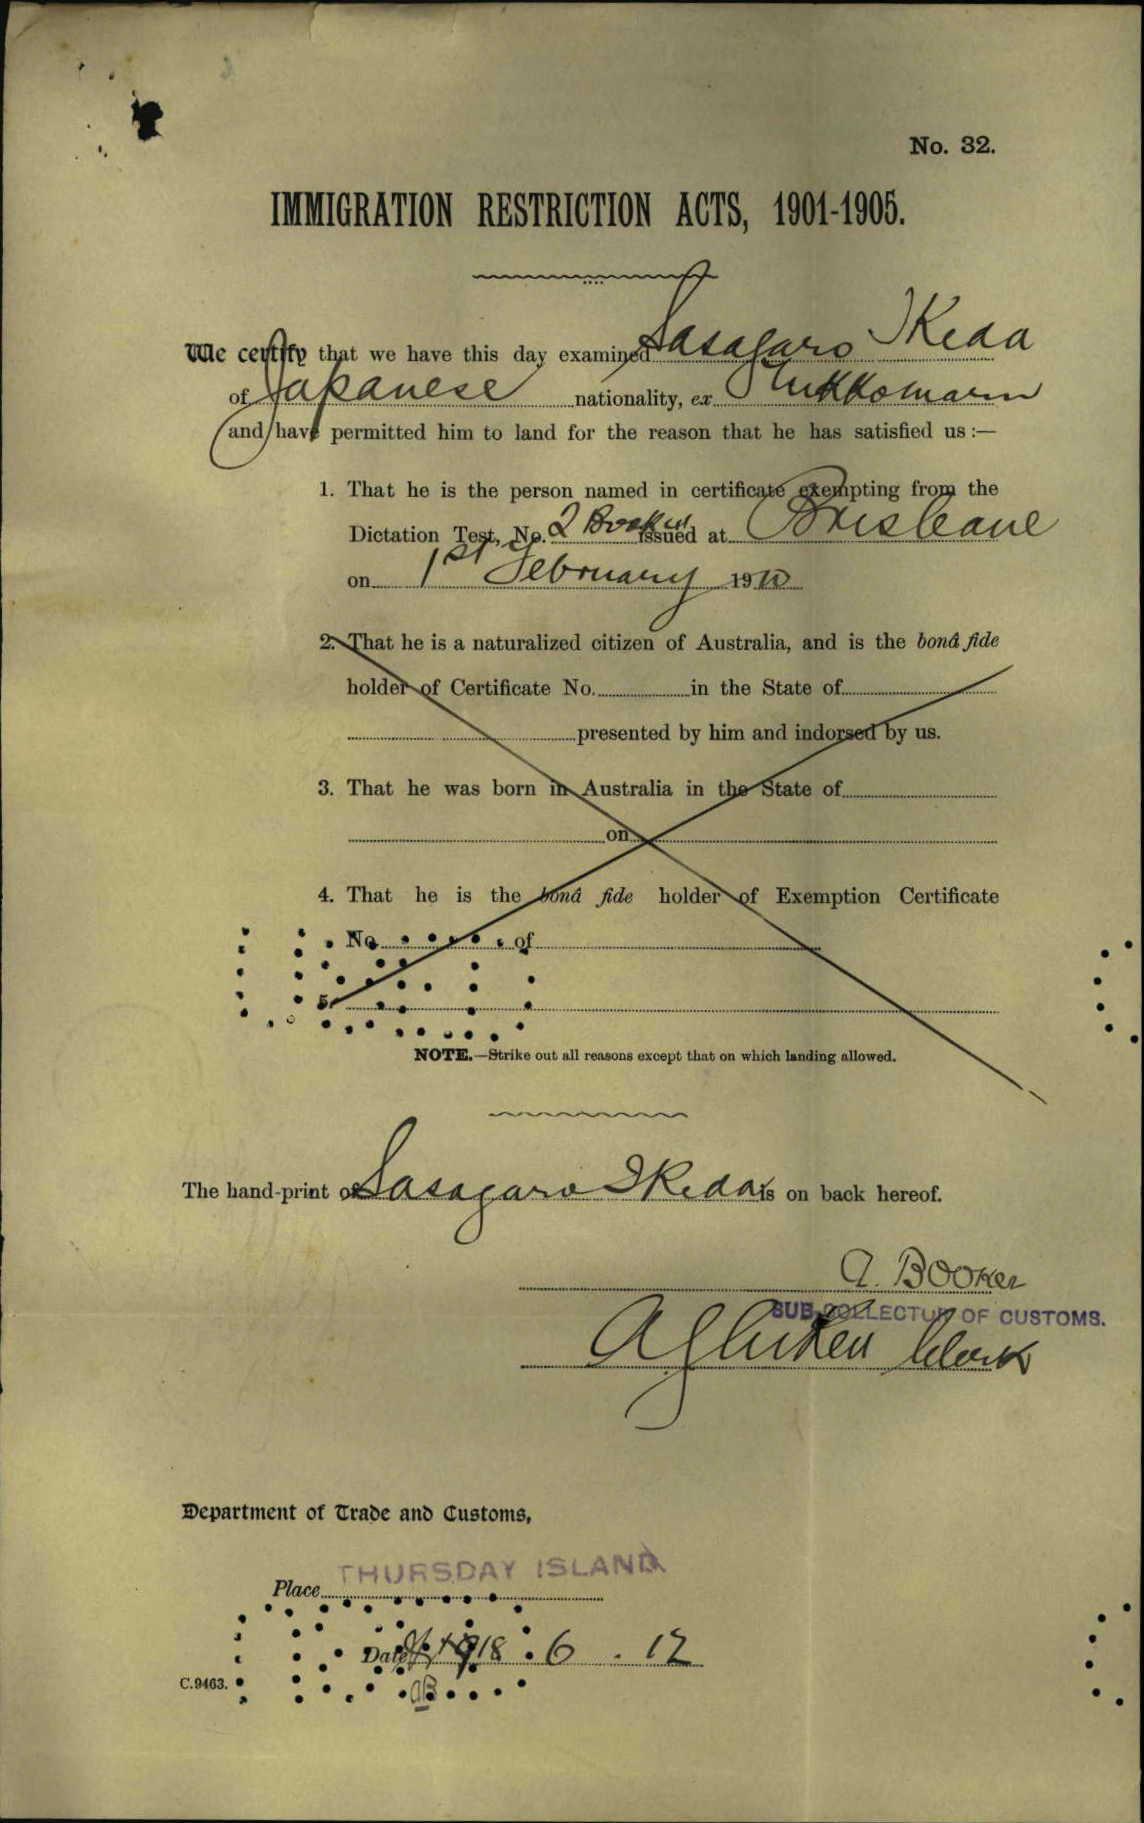 No. 32.
IMMIGRATION RESTRICTION ACTS, 1901-1905.
We certify that we have this day examined Sasagaro Ikeda
of Japanese nationality, ex
and have permitted him to land for the reason that he has satisfied us :—
1. That he is the person named in certificate exempting from the
Dictation Test, No. 2 Book issued at Brisbane
on 1st February 1910
2. That he is a naturalized citizen of Australia, and is the bonâ fide
holder of Certificate No. in the State of
presented by him and indorsed by us.
3. That he was born in Australia in the State of
on
4. That he is the bonâ fide holder of Exemption Certificate
No. of
5.
NOTE.—Strike out all reasons except that on which landing allowed.
The hand-print of Sasagaro Ikeda is on back hereof.
A. Booker
SUB-COLLECTOR OF CUSTOMS.
Clerk
Department of Trade and Customs,
Place THURSDAY ISLAND
Date 18 . 6 . 12
C.9463. AB